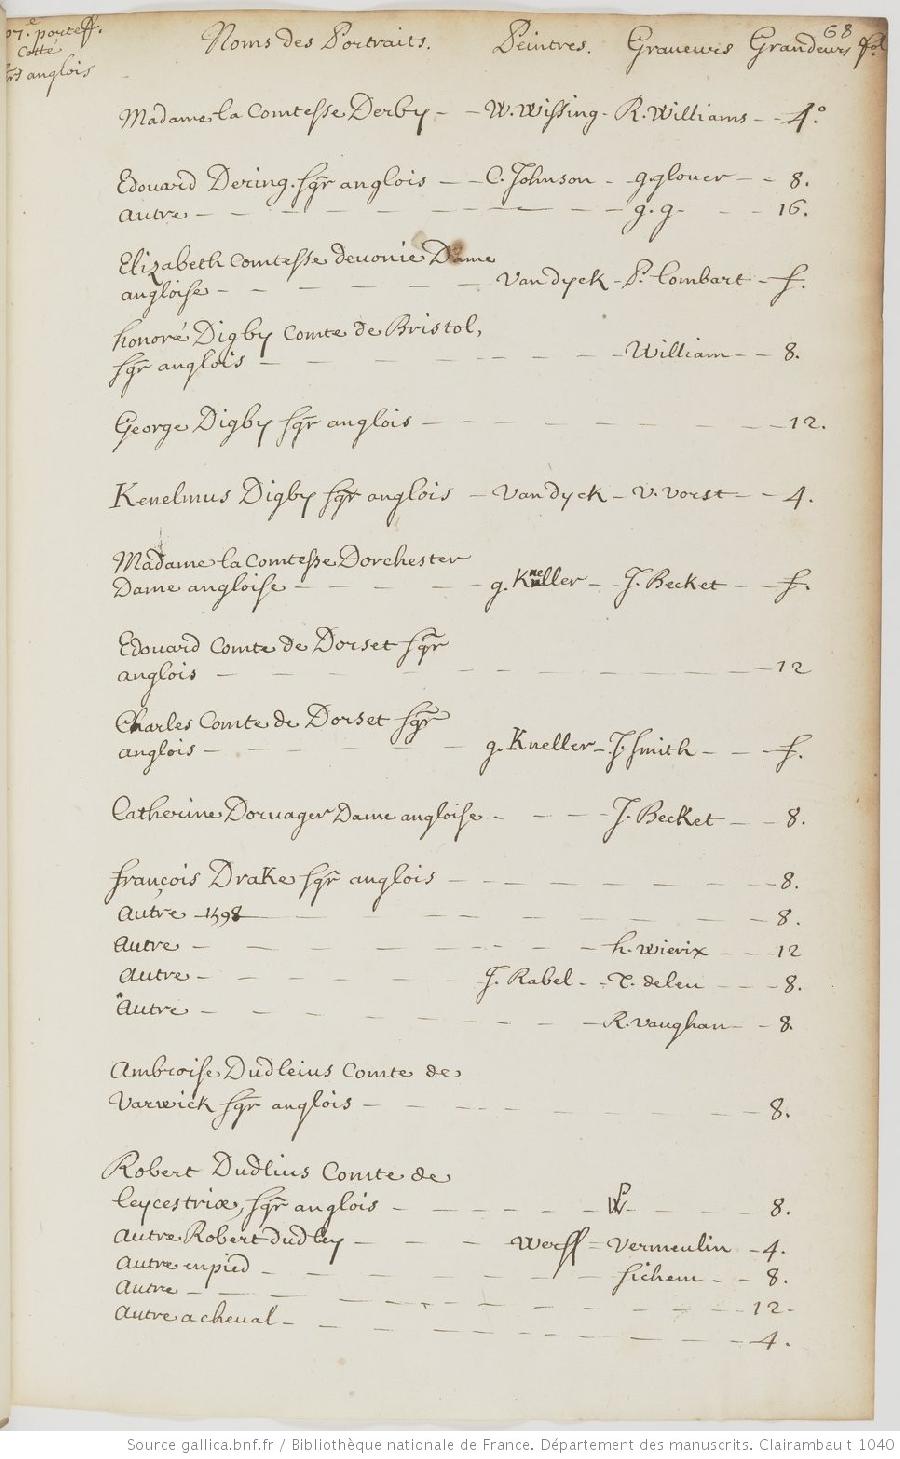 07.e porteff.
Cotté
anglois
68
Noms des Portraits. Peintres. Graveurs Grandeurs fol
Madame la Comtesse Derby - - W. Wissing - R. Williams - - 4.o
Edouard Dering. sgr anglois - - C. Johnson - g. glover - - 8.
autre - - - - - - - g. g. - - 16.
Elizabeth Comtesse devonie Dame
angloise - - - - - - Vandyck - P. Lombart - f.
honoré Digby Comte de Bristol,
sgr anglois - - - - - - - William - - 8.
George Digby sgr anglois - - - - - - - 12.
Kenelmus Digby sgr anglois - Vandyck - V. Vorst - - 4.
Madame la Comtesse Dorchester
Dame angloise - - - - g. Kneller - J. Becket - f.
Edouard Comte de Dorset sgr
anglois - - - - - - - - 12
Charles Comte de Dorset sgr
anglois - - - - - g. Kneller - J. Smith - - f.
Catherine Douager Dame angloise - - - J. Becket - - 8.
françois Drake sgr anglois - - - - - - 8.
autre - 1598 - - - - - - - 8.
autre - - - - - - - h. wierix - - 12
autre - - - - - J. Rabel - - T. deleu - - - 8.
autre - - - - - - - R. Vaughan - - 8.
Ambroise Dudleius Comte de
Varwick sgr anglois - - - - - - - 8.
Robert Dudlius Comte de
Leycestriæ, sgr anglois - - - - - - - 8.
autre Robert dudley - - - Werff = Vermeulin - 4.
autre en pied - - - - - - - Sichem - - 8.
autre - - - - - - - - - 12 -
autre a cheval - - - - - - - - 4.
Source gallica.bnf.fr / Bibliothèque nationale de France. Département des manuscrits. Clairambault 1040